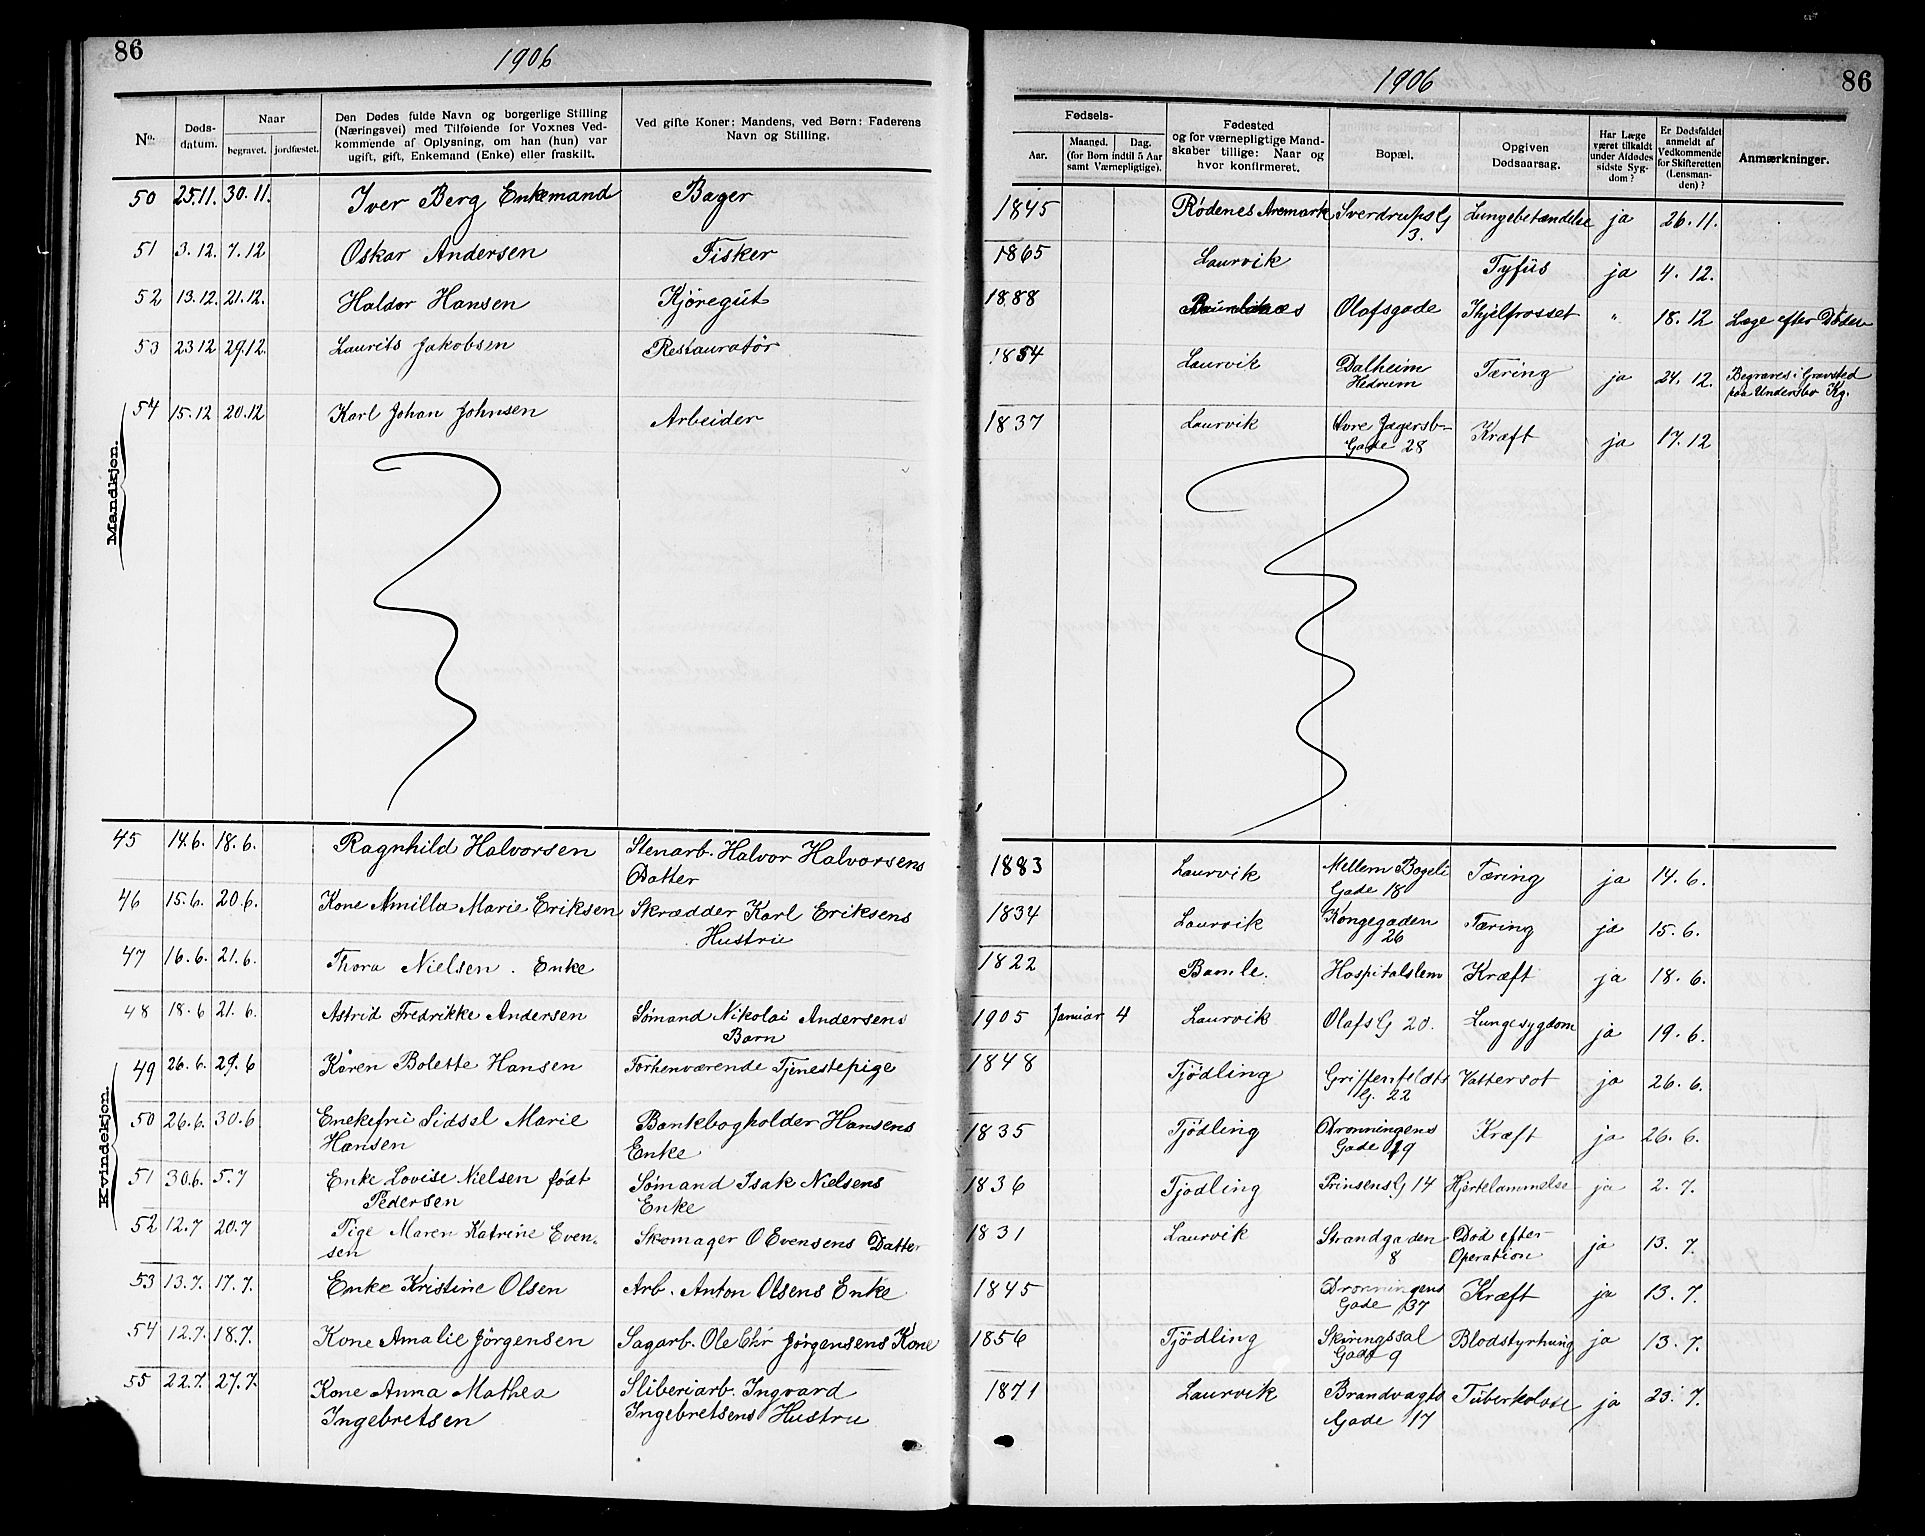 86
1906
No.
Døds-
datum.
Naar
begravet. jordfæstet.
Den Dødes fulde Navn og borgerlige Stilling
(Næringsvei) med Tilføiende for Voxnes Ved-
kommende af Oplysning, om han (hun) var
ugift, gift, Enkemand (Enke) eller fraskilt.
Ved gifte Koner: Mandens, ved Børn: Faderens
Navn og Stilling.
50 25.11. 30.11. Iver Berg Enkemand Bager
51 3.12. 7.12 Oskar Andersen Fisker
52 13.12. 21.12. Haldor Hansen Kjøregut
53 23.12 29.12. Laurits Jakobsen Restauratør
54 15.12 20.12 Karl Johan Johnsen Arbeider
Mandkjøn.
45 14.6. 18.6. Ragnhild Halvorsen Stenarb. Halvor Halvorsens
Datter
46 15.6. 20.6. Kone Amilla Marie Eriksen Skrædder Karl Eriksens
Hustru
47 16.6. 21.6. Thora Nielsen. Enke
48 18.6 21.6. Astrid Fredrikke Andersen Sømand Nikolai Andersens
Barn
49 26.6. 29.6 Karen Bolette Hansen Forhenværende Tjenestepige
50 26.6. 30.6 Enekefru Sidssl Marie Bankebogholder Hansens
Hansen Enke
51 30.6. 5.7 Enke Lovise Nielsen født Sømand Isak Nielsens
Pedersen Enke
52 12.7 20.7 Pige Maren Katrine Even-
sen Skomager O Evensens Datter
53 13.7. 17.7. Enke Kristine Olsen Arb. Anton Olsens Enke
54 12.7. 18.7. Kone Amalie Jørgensen Sagarb. Ole Chr Jørgensens Kone
55 22.7. 27.7. Kone Anna Mathea Sliberiarb. Ingvard
Ingebretsen Ingebretsens Hustru
Kvindekjøn.
1906
86
Fødsels-
Aar.
Maaned. Dag.
(for Børn indtil 5 Aar
samt Værnepligtige).
Fødested
og for værnepligtige Mand-
skaber tillige: Naar og
hvor konfirmeret.
Bopæl.
Opgiven
Dødsaarsag.
Har Læge
været tilkaldt
under Afdødes
sidste Syg-
dom?
Er Dødsfaldet
anmeldt af
Vedkommende
for Skifteretten
(Lensman-
den)?
Anmærkninger.
1845 Rødenes Aremark Sverdrups G Lungebetændelse ja 26.11.
13.
1865 Laurvik Tyfus ja 4.12.
1888 Olafsgade Ihjelfrosset " 18.12 Læge efter Døden
1854 Laurvik Dalheim Tæring ja 24.12. Begraves i Gravsted
Hedrum paa Undersbo Kg.
1837 Laurvik Øvre Jagersb- Kræft ja 17.12
Gade 28
1883 Laurvik Mellem Bøgeli Tæring ja 14.6.
Gade 18
1834 Laurvik Kongegaden Tæring ja 15.6.
26
1822 Bamle. Hospitalslem Kræft ja 18.6.
1905 Januar 4 Laurvik Olafs G 20. Lungesygdom ja 19.6.
1848 Tjødling Griffenfeldts Vattersot ja 26.6.
G. 22
1835 Tjødling Dronningens Kræft ja 26.6.
Gade 19
1836 Tjødling Prinsens G 14 Hjertelammelse ja 2.7.
1831 Laurvik Strandgaden Død efter ja 13.7.
8 Operation
1845 Dronningens Kræft ja 13.7.
Gade 37
1856 Tjødling Skiringssal Blodstyrtning ja 13.7.
Gade 9
1871 Laurvik Brandvagts Tuberkolose ja 23.7.
Gade 17